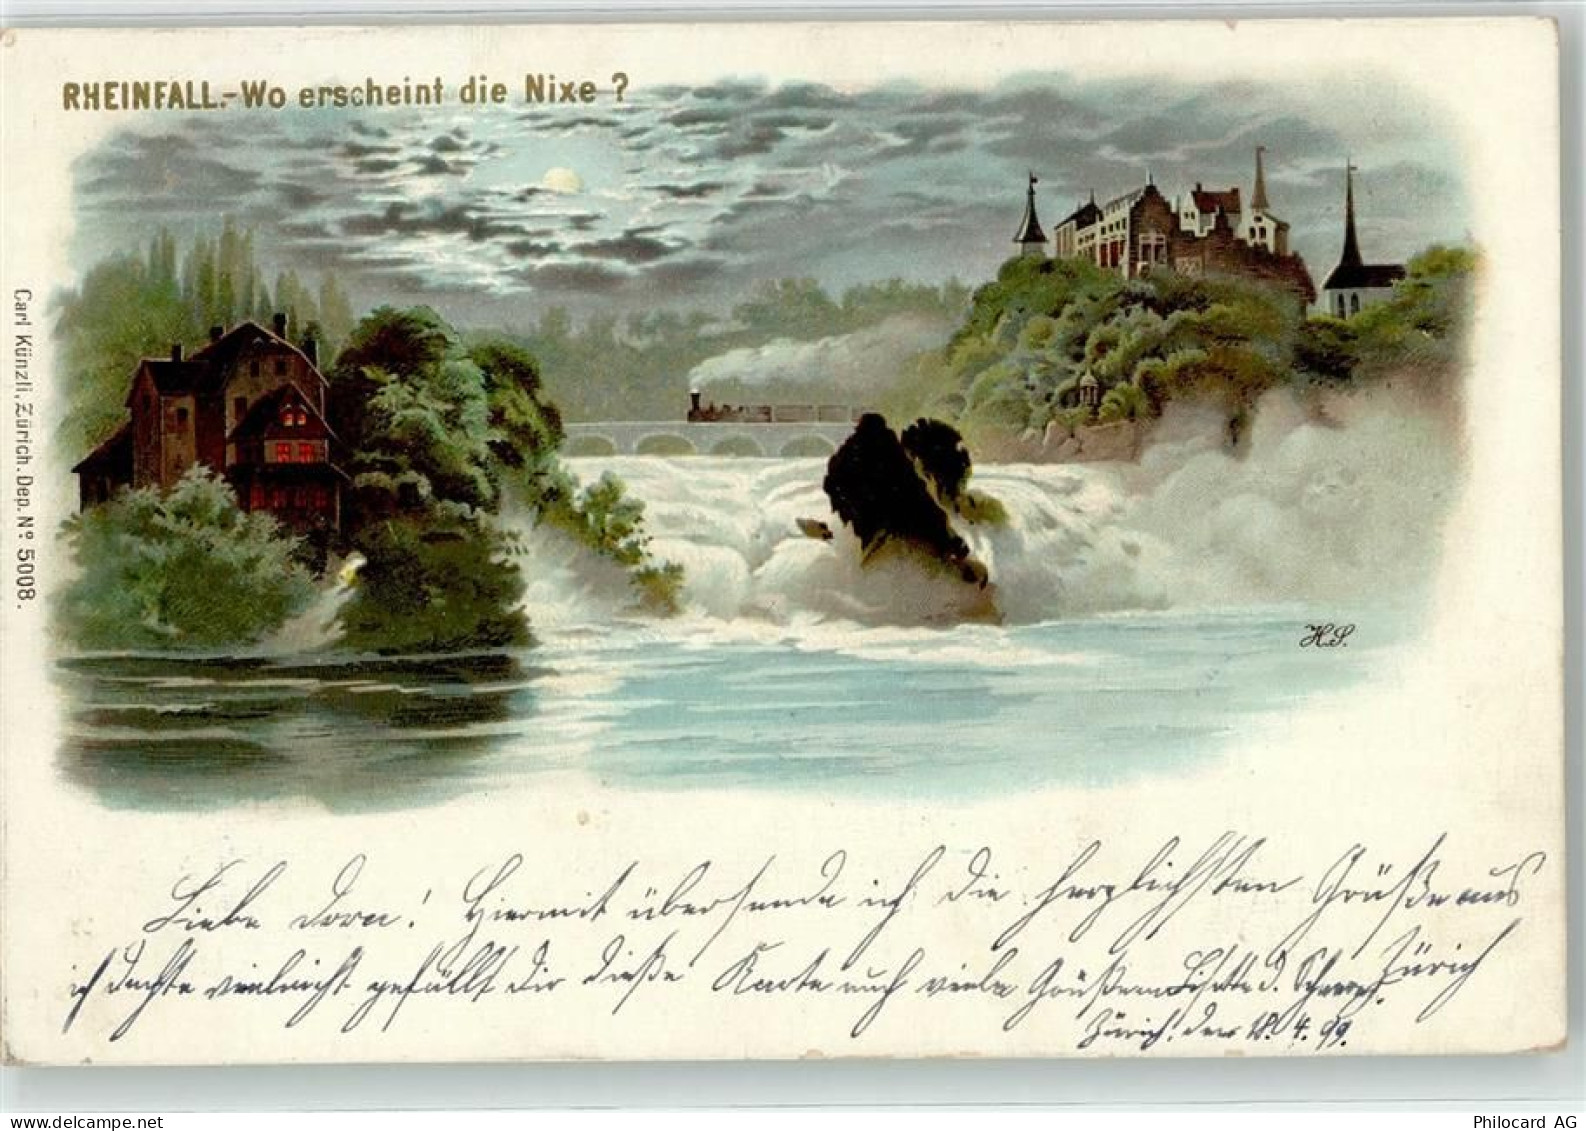 RHEINFALL.-Wo erscheint die Nixe?
Carl Künzli, Zürich. Dep. No. 5008.
H.S.
Liebe Dora! Hiermit übersende ich die herzlichsten Grüße aus
Zürich
ich dachte vielleicht gefällt Dir diese Karte auch viele Grüße
Zürich, den 18. 4. 99.
delcampe.net
Philocard AG